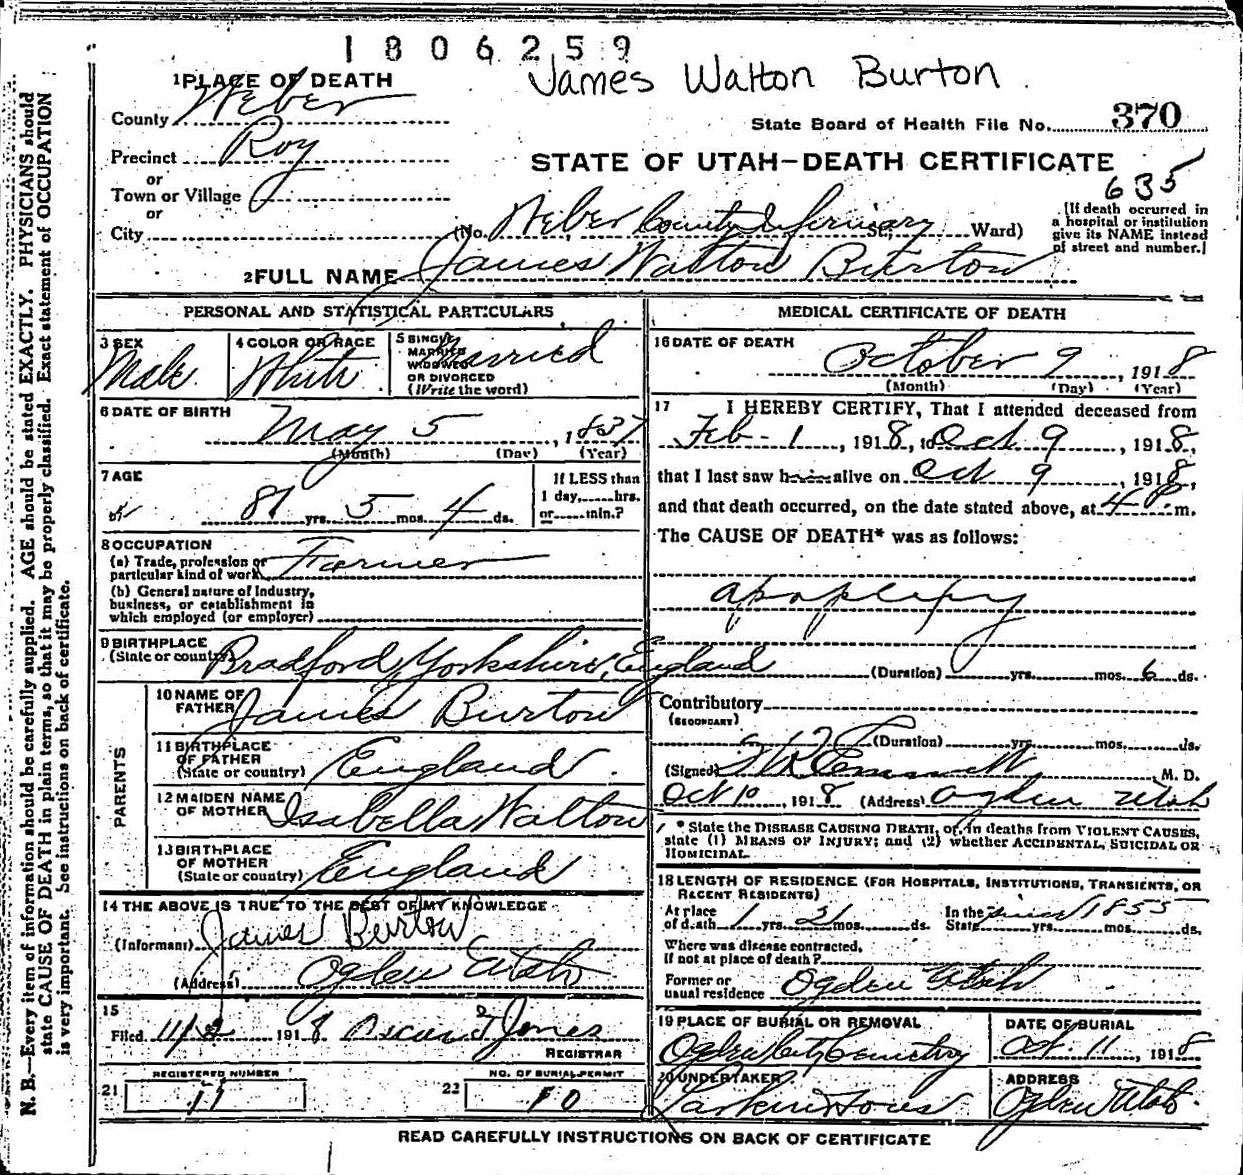 1806259
James Walton Burton
1 PLACE OF DEATH
County Weber
State Board of Health File No. 370
Precinct Roy
STATE OF UTAH—DEATH CERTIFICATE
or
Town or Village
635
or
City (No. Weber County Infirmary St; Ward)
[If death occurred in a hospital or institution give its NAME instead of street and number.]
2 FULL NAME James Walton Burton
PERSONAL AND STATISTICAL PARTICULARS
3 SEX Male
4 COLOR OR RACE White
5 SINGLE MARRIED WIDOWED OR DIVORCED (Write the word) Married
6 DATE OF BIRTH
May 5, 1837
(Month) (Day) (Year)
7 AGE
81 yrs. 5 mos. 4 ds.
If LESS than 1 day, hrs. or min.?
8 OCCUPATION
(a) Trade, profession or particular kind of work Farmer
(b) General nature of Industry, business, or establishment in which employed (or employer)
9 BIRTHPLACE (State or country) Bradford, Yorkshire, England
PARENTS
10 NAME OF FATHER James Burton
11 BIRTHPLACE OF FATHER (State or country) England
12 MAIDEN NAME OF MOTHER Isabella Walton
13 BIRTHPLACE OF MOTHER (State or country) England
14 THE ABOVE IS TRUE TO THE BEST OF MY KNOWLEDGE
(Informant) James Burton
(Address) Ogden Utah
15
Filed 11/2 1918 Oscar T Jones
REGISTRAR
REGISTERED NUMBER
21 11
NO. OF BURIAL PERMIT
22 10
MEDICAL CERTIFICATE OF DEATH
16 DATE OF DEATH
October 9, 1918
(Month) (Day) (Year)
17 I HEREBY CERTIFY, That I attended deceased from
Feb - 1, 1918, to Oct 9, 1918,
that I last saw h alive on Oct 9, 1918,
and that death occurred, on the date stated above, at 4 P.m.
The CAUSE OF DEATH* was as follows:
apoplexy
(Duration) yrs. mos. 6 ds.
Contributory
(SECONDARY)
(Duration) yrs. mos. ds.
(Signed) Emmett M. D.
Oct 10, 1918 (Address) Ogden Utah
* State the DISEASE CAUSING DEATH, or, in deaths from VIOLENT CAUSES, state (1) MEANS OF INJURY; and (2) whether ACCIDENTAL, SUICIDAL OR HOMICIDAL.
18 LENGTH OF RESIDENCE (FOR HOSPITALS, INSTITUTIONS, TRANSIENTS, OR RECENT RESIDENTS)
At place of death 1 yrs. mos. ds. In the State since 1855 yrs. mos. ds.
Where was disease contracted,
if not at place of death?
Former or usual residence Ogden Utah
19 PLACE OF BURIAL OR REMOVAL
Ogden City Cemetery
DATE OF BURIAL
Oct. 11, 1918
20 UNDERTAKER
ADDRESS
Ogden Utah
READ CAREFULLY INSTRUCTIONS ON BACK OF CERTIFICATE
N. B.—Every item of information should be carefully supplied. AGE should be stated EXACTLY. PHYSICIANS should
state CAUSE OF DEATH in plain terms, so that it may be properly classified. Exact statement of OCCUPATION
is very important. See instructions on back of certificate.